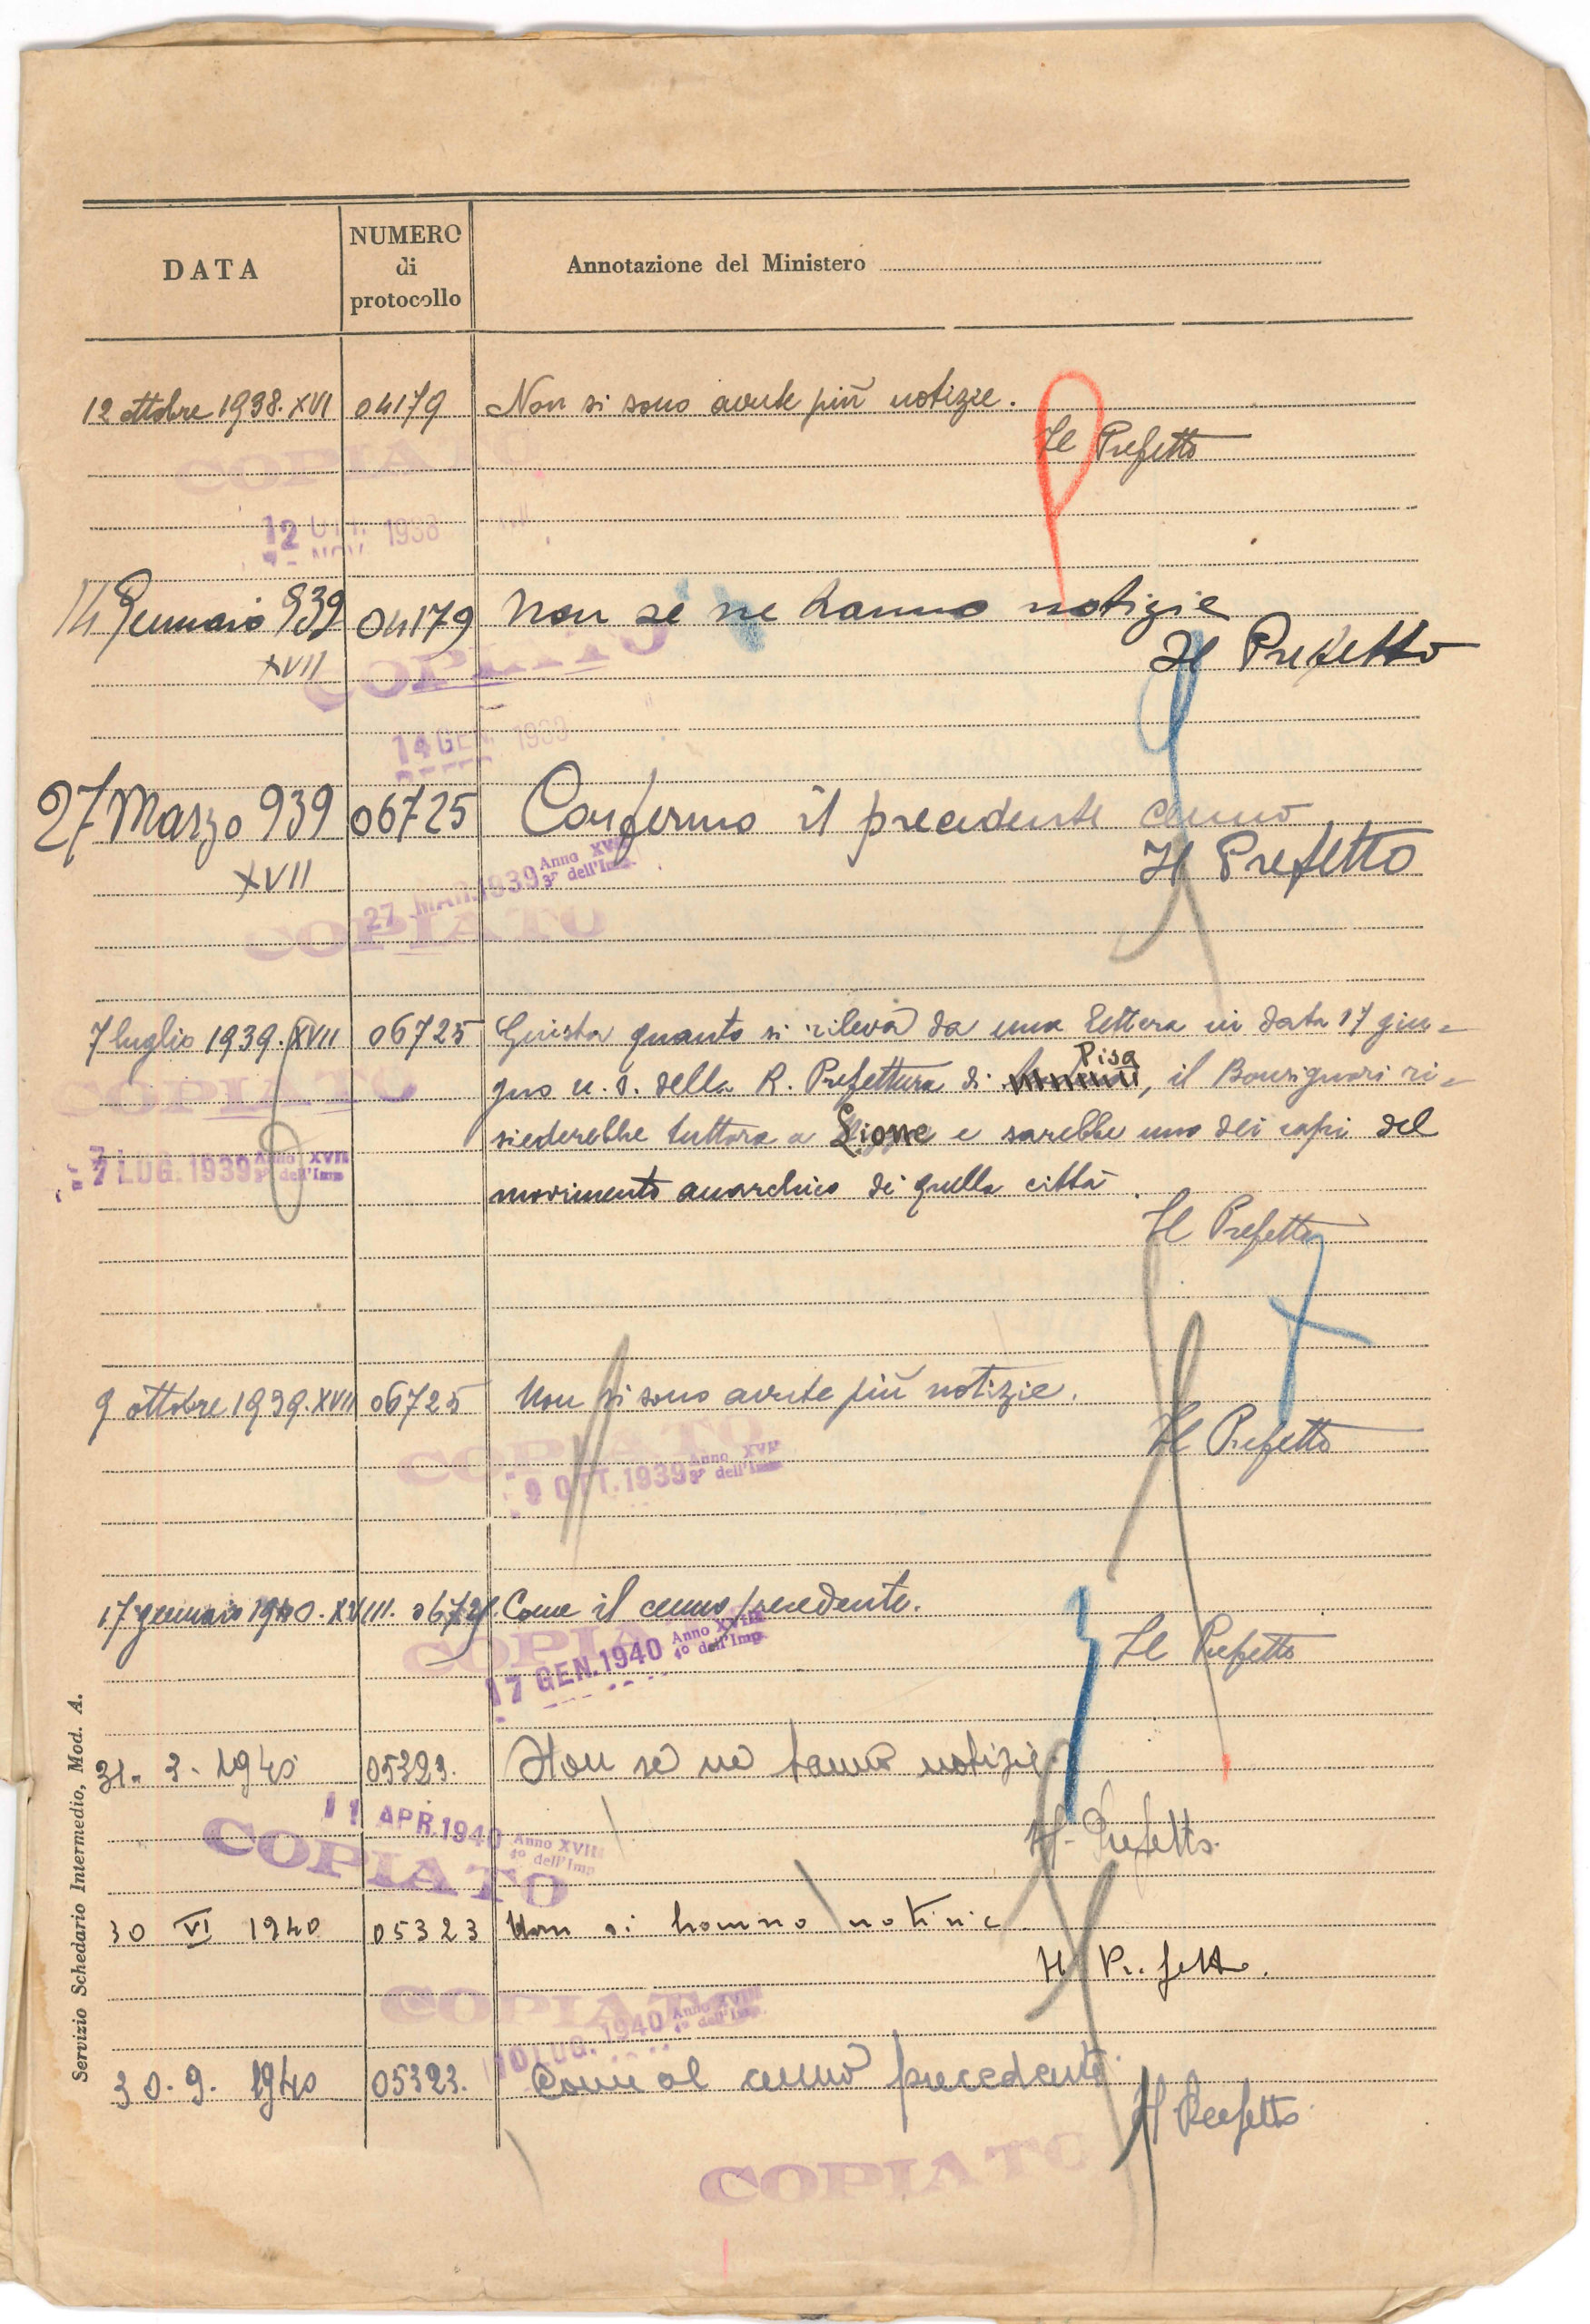 DATA
NUMERO
di
protocollo
Annotazione del Ministero
12 ottobre 1938. XVI 04179 Non si sono avute più notizie.
Il Prefetto
COPIATO
12 OTT. 1938
NOV.
14 Gennaio 939 04179 Non se ne hanno notizie
XVII
Il Prefetto
COPIATO
14 GEN. 1939
27 Marzo 939 06725 Confermo il precedente cenno
XVII
Il Prefetto
27 MAR. 1939 Anno XVII
3° dell'Imp.
COPIATO
7 luglio 1939. XVII 06725 Giusta quanto si rileva da una lettera in data 17 giu=
gno u. s. della R. Prefettura di Pisa, il Bonsignori ri=
siederebbe tuttora a Lione e sarebbe uno dei capi del
movimento anarchico di quella città.
Il Prefetto
COPIATO
7 LUG. 1939 Anno XVII
dell'Imp.
9 ottobre 1939. XVII 06725 Non si sono avute più notizie.
Il Prefetto
COPIATO
9 OTT. 1939 Anno XVII
3° dell'Imp.
17 gennaio 1940. XVIII. 06725 Come il cenno precedente.
Il Prefetto
COPIATO
17 GEN. 1940 Anno XVIII
4° dell'Imp.
31. 3. 1940 05323. Non se ne hanno notizie.
Il Prefetto.
11 APR. 1940 Anno XVIII
4° dell'Imp.
COPIATO
30 VI 1940 05323 Non si hanno notizie
Il Prefetto.
COPIATO
10 LUG. 1940 Anno XVIII
4° dell'Imp.
30. 9. 1940 05323. Come al cenno precedente.
Il Prefetto
COPIATO
Servizio Schedario Intermedio, Mod. A.